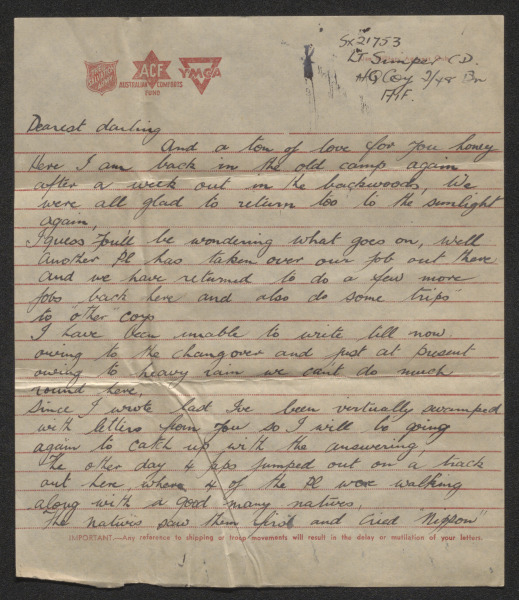 THE SALVATION ARMY
ACF
AUSTRALIAN COMFORTS
FUND
YMCA
SX21753
LT Simper C D.
HQ Coy 2/48 Bn
AIF.
Dearest darling
And a ton of love for you honey
Here I am back in the old camp again
after a week out in the backwoods, We
were all glad to return too to the sunlight
again,
I guess you'll be wondering what goes on, well
another Pl has taken over our job out there
and we have returned to do a few more
jobs back here and also do some trips
to "other" coys
I have been unable to write till now
owing to the changover and just at present
owing to heavy rain we cant do much
round here,
Since I wrote last I've been vertually swamped
with letters from you so I will be going
again to catch up with the answering,
The other day 4 Japs jumped out on a track
out here, where 4 of the Pl were walking
along with a good many natives,
The natives saw them first and cried Nippon"
IMPORTANT.—Any reference to shipping or troop movements will result in the delay or mutilation of your letters.